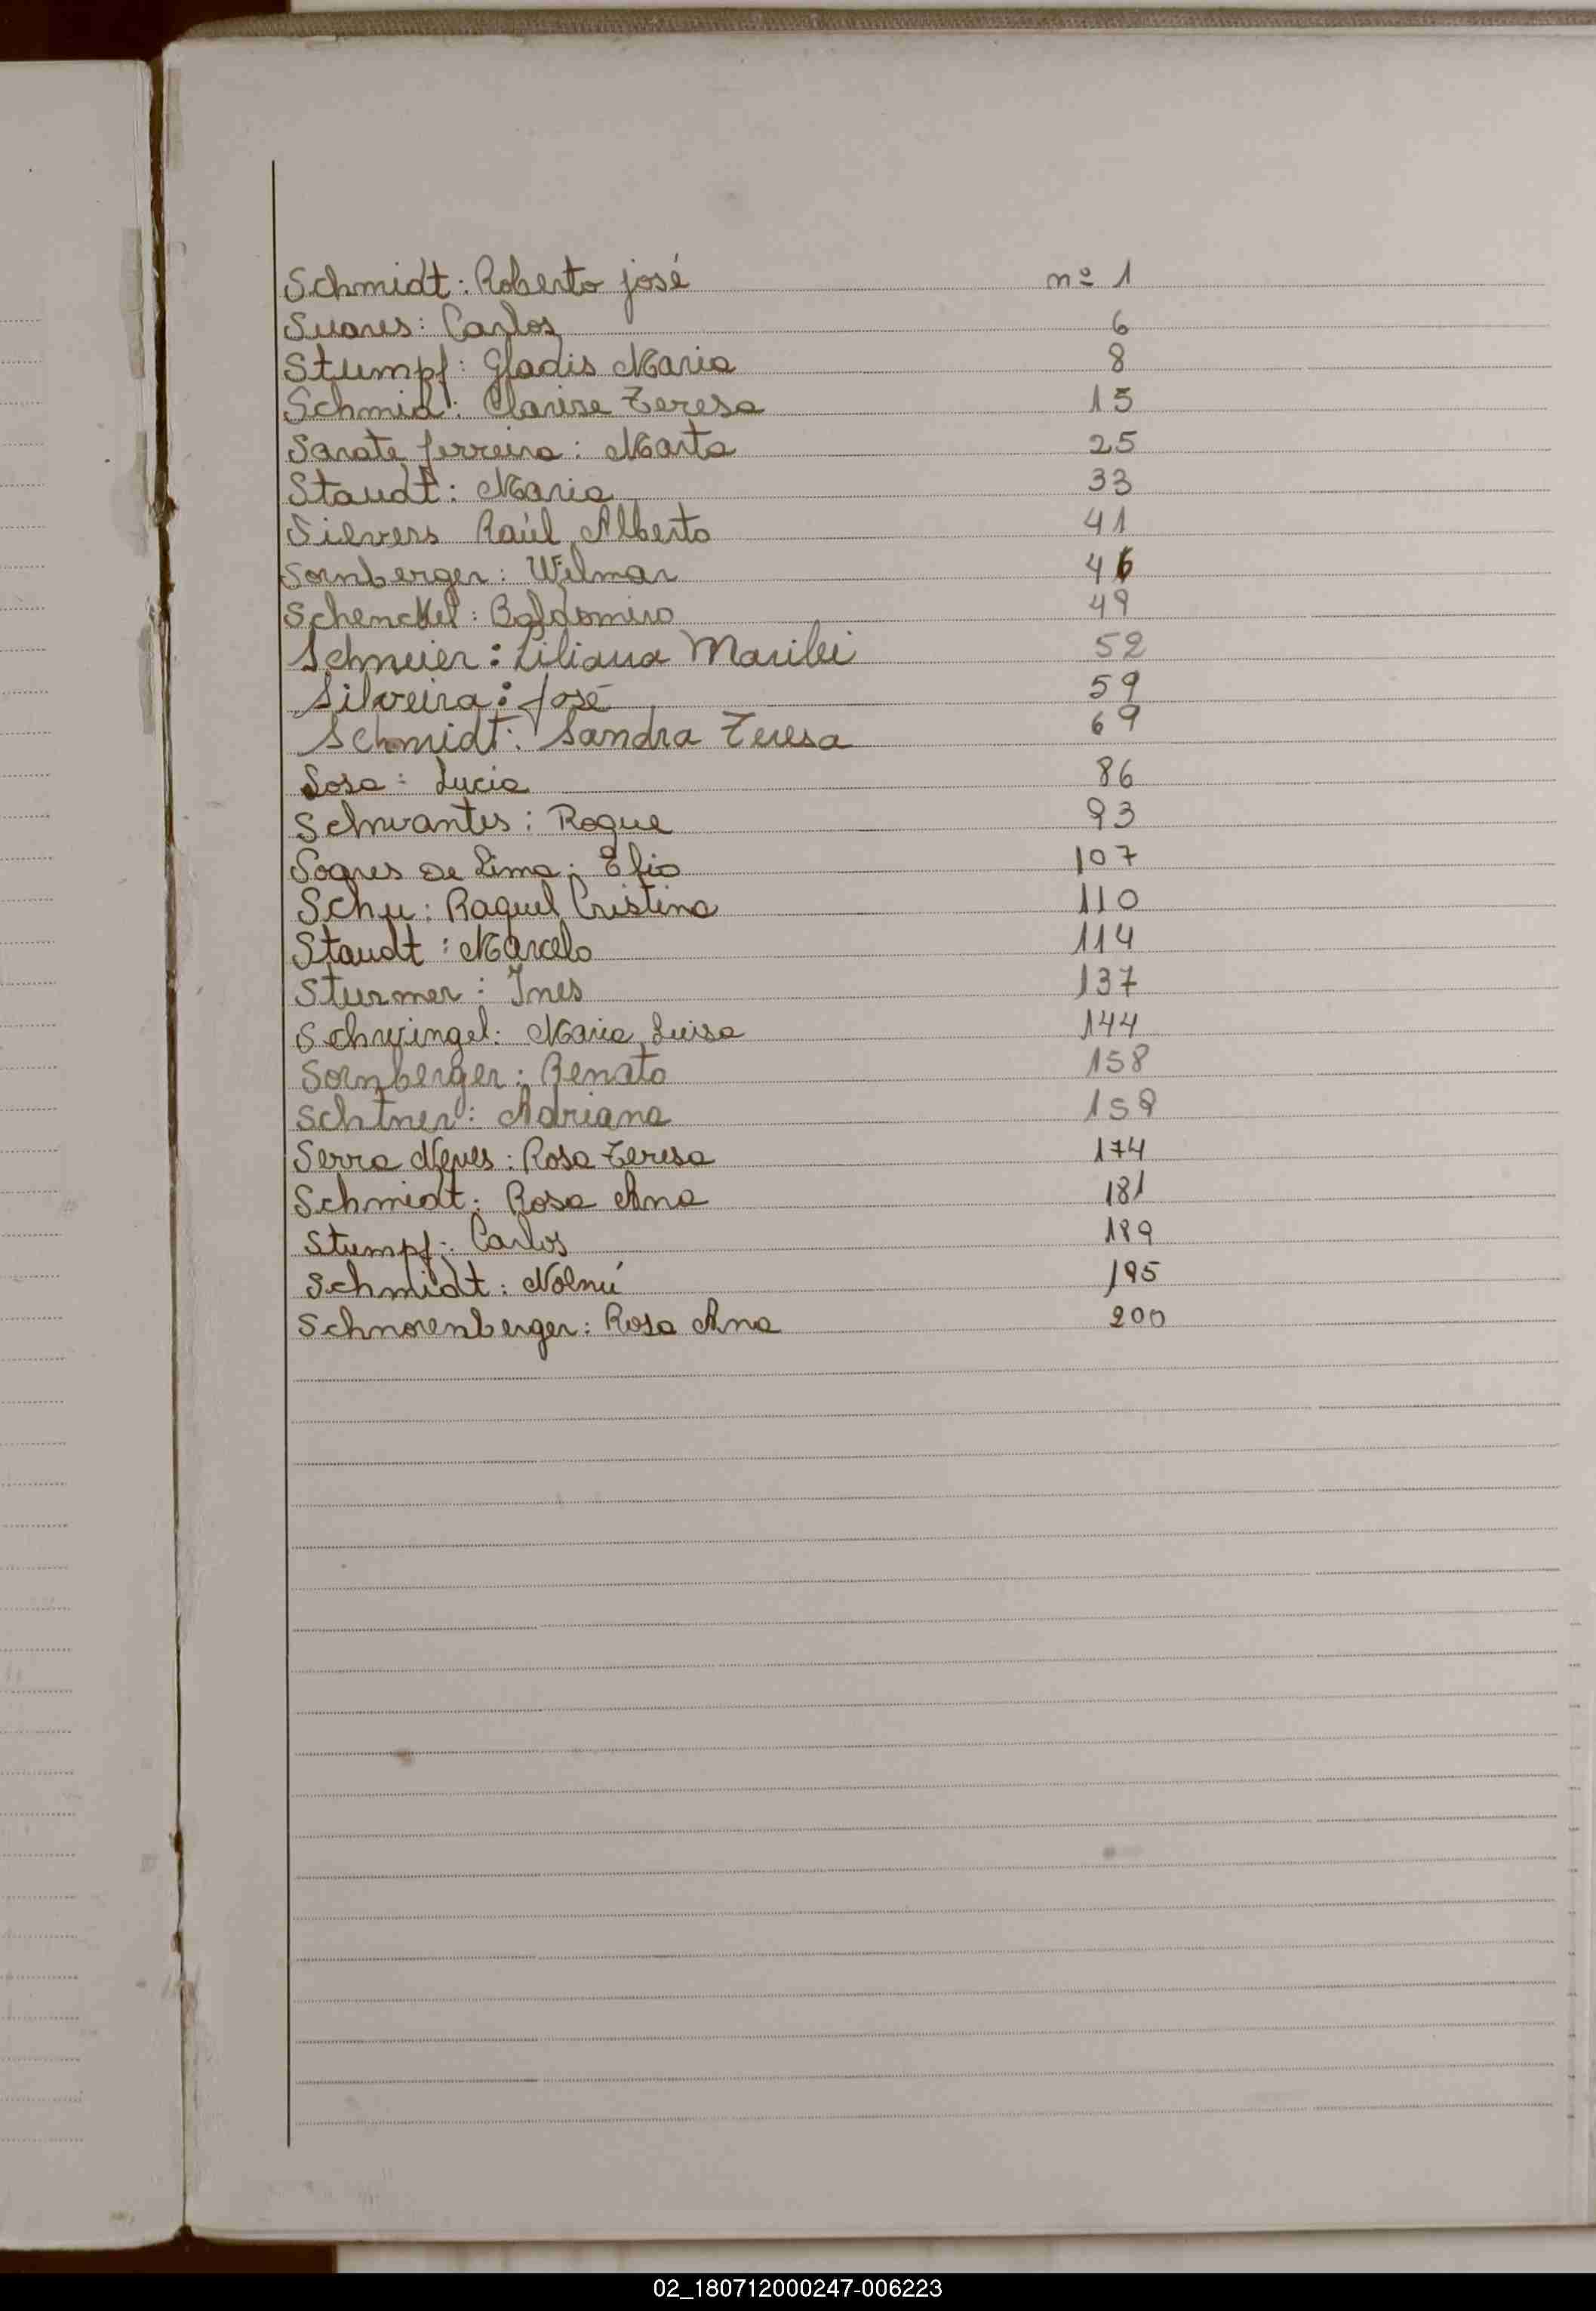 Schmidt: Roberto josé nº 1
Suares: Carlos 6
Stumpf: Gladis Maria 8
Schmid: Clarise Teresa 15
Sarate ferreira: Marta 25
Staudt: Maria 33
Sievers Raúl Alberto 41
Sornberger: Wilmar 46
Schenckel: Baldomiro 49
Schmeier: Liliana Marilei 52
Silveira: José 59
Schmidt: Sandra Teresa 69
Sosa: Lucia 86
Schvantes: Roque 93
Soares de Lima: Elio 107
Schu: Raquel Cristina 110
Staudt: Marcelo 114
Sturmer: Ines 137
Schwingel: Maria Luisa 144
Sornberger: Renato 158
Schtner: Adriana 159
Serra Neves: Rosa Teresa 174
Schmidt: Rosa Ana 181
Stumpf: Carlos 189
Schmidt: 195
Schnorenberger: Rosa Ana 200
02_180712000247-006223